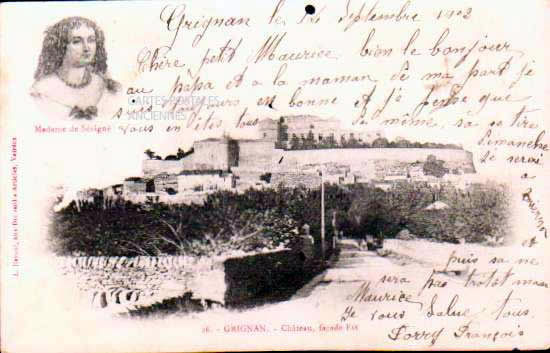 Grignan le 14 Septembre 1902
Chère petit Maurice bien le bonjour
au papa et a la maman de ma part je
suis toujours en bonne et je pense que
vous en êtes tous de même, sa sera
Dimanche
je serai
a
et
puis sa ne
sera pas trop
Maurice
Je vous Salue tous.
Porry François
Madame de Sévigné
CARTES POSTALES
ANCIENNES
26. - GRIGNAN. - Château, façade Est